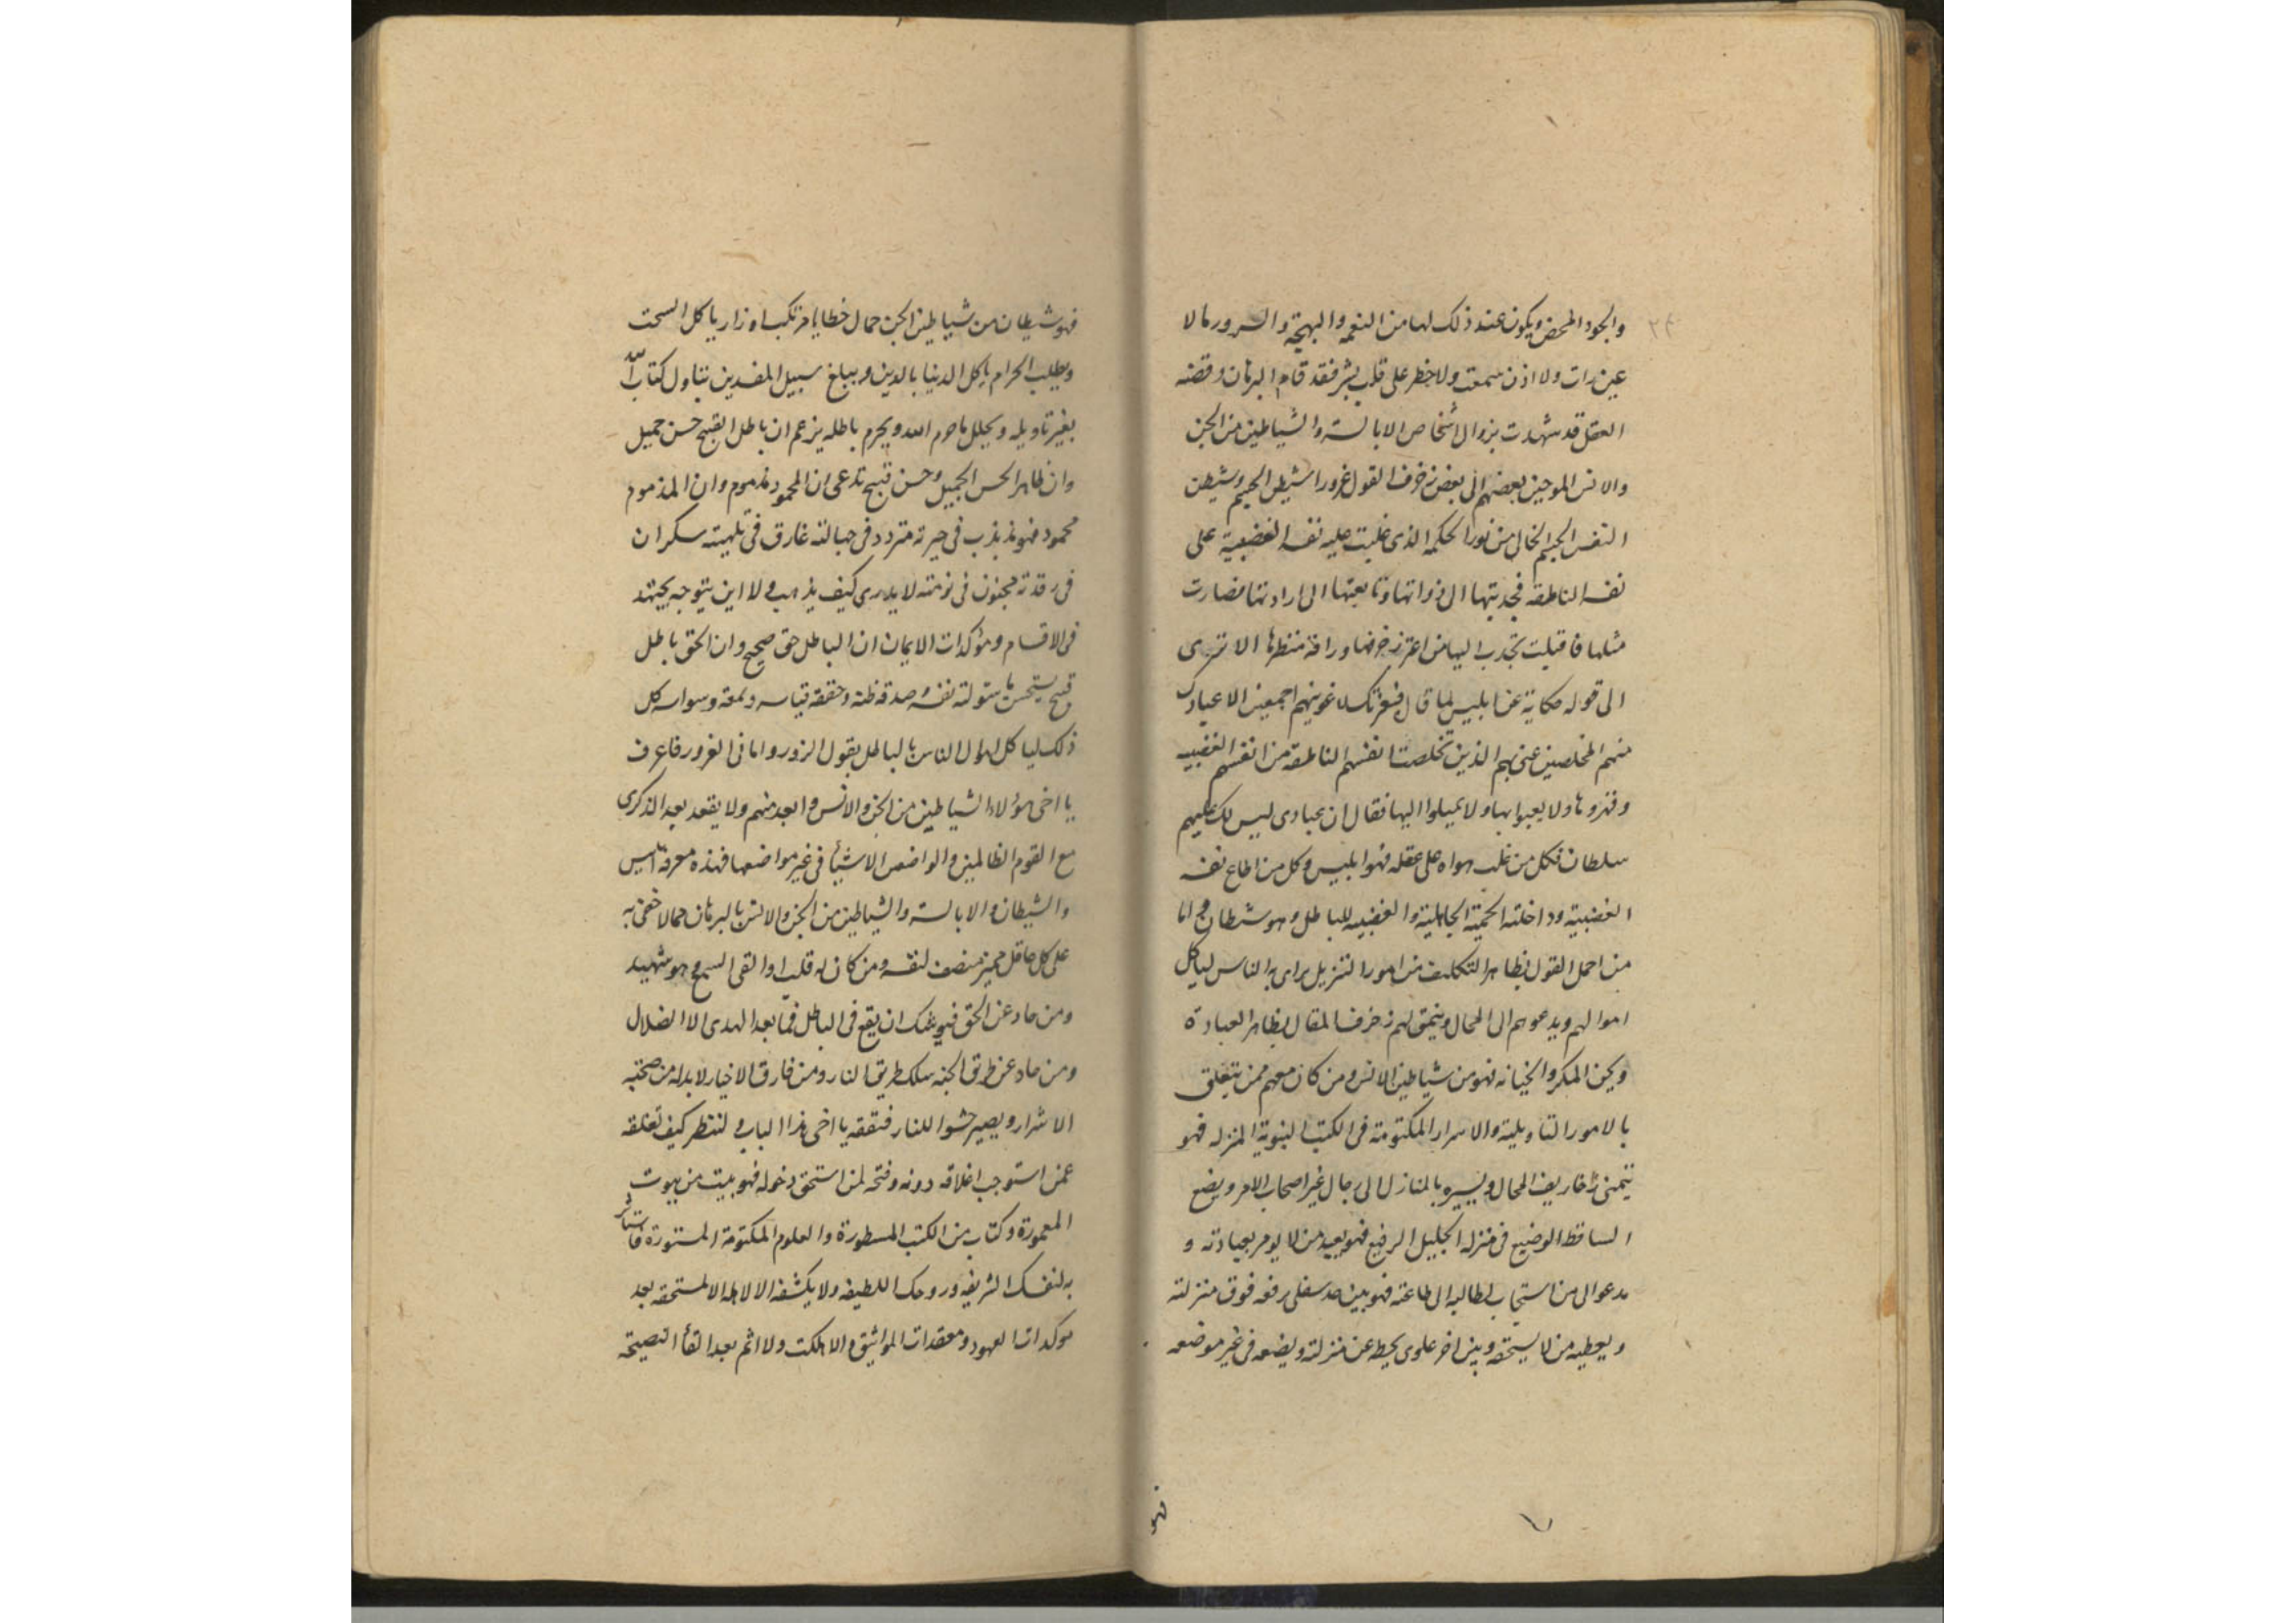 ٢٤
والجود المحض ويكون عند ذلك لها من النعمه والبهجة والسرور مالا
عين رات ولا اذن سمعت ولا خطر على قلب بشر فقد قام البرهان وقضيه
العقل قد شهدت بزوال اشخاص الابالسة والشياطين من الجن
والانس الموحين بعضهم الى بعض زخرف القول غرورا شيطن الجسيم وشيطن
النفس الجسم الخالى من نور الحكمه الذى غلبت عليه نفسه الغضبية على
نفسه الناطقه فجدبتها الى ذواتها وتابعتها الى ارادتها فصارت
مثلها فاقبلت تجدب اليها من اعتر زخرفها وراقه منظرها الا ترى
الى قوله حكاية عن ابليس لما قال فبعزتك لاغوينهم اجمعين الا عبادك
منهم المخلصين عنى بهم الذين تخلصت انفسهم الناطقه من انفسهم الغضبيه
وقهروها ولا يعبوا بها ولا يميلوا اليها فقال ان عبادى ليس لك عليهم
سلطان فكل من غلب هواه على عقله فهو ابليس وكل من اطاع نفسه
الغضبية وداخلته الحمية الجاهلية والغضبيه للباطل وهو شيطان واما
من احمل القول بظاهر التكليف من امور التنزيل يراى به الناس لياكل
اموالهم ويدعوهم الى المحال وينمق لهم زخرف المقال بظاهر العبادة
ويكن المكر والخيانه فهو من شياطين الانس ومن كان معهم ممن يتعلق
بالامور التاويلية والاسرار المكتومة فى الكتب النبوية المنزله فهو
يتمنى زخاريف المحال ويسيره بالمنازل الى رجال غير اصحاب الامر ويضع
الساقط الوضيع فى منزله الجليل الرفيع فهو يعبد من لا يومر بعبادته و
يدعو الى من استجاب لطالبه الى طاعته فهو بين حد سفلى رفعه فوق منزلته
ويعطيه من لا يستحقه وبين اخر علوى يحطه عن منزلته ويضعه فى غير موضعه
فهو
فهو شيطان من شياطين الجن حمال خطايا مرتكب اوزار ياكل السحت
ويطلب الحرام ياكل الدنيا بالدين ويبلغ سبيل المفسدين يتناول كتاب الله
بغير تاويله ويحلل ما حرم الله ويحرم باطله يزعم ان باطل القبيح حسن جميل
وان ظاهر الحسن الجميل وحسن قبيح تدعى ان المحمود مذموم وان المذموم
محمود فهو مذبذب فى حيرته متردد فى جهالته غارق فى تلهيته سكران
فى رقدته مجنون فى نومته لا يدرى كيف يذهب ولا اين يتوجه يجتهد
فى الاقسام ومؤكدات الايمان ان الباطل حق صحيح وان الحق باطل
قبيح يستحسن ما سولته نفسه وصدقه ظنه وحققه قياسه ولمعه وسواسه كل
ذلك لياكل اموال الناس بالباطل بقول الزور وامانى الغرور فاعرف
يا اخى هؤلاء الشياطين من الجن والانس وابعد منهم ولا يقعد بعد الذكرى
مع القوم الظالمين والواضعين الاشيأ فى غير مواضعها فهذه معرفة ابليس
والشيطان والابالسة والشياطين من الجن والانس بالبرهان مما لا خفى به
على كل عاقل مميز منصف لنفسه ومن كان له قلب او القى السمع وهو شهيد
ومن حاد عن الحق فيوشك ان يقع فى الباطل فما بعد الهدى الا الضلال
ومن حاد عن طريق الجنه سلك طريق النار ومن فارق الاخيار لا بد له من صحبة
الاشرار ويصير حشوا للنار فتفقه يا اخى هذا الباب و لتنظر كيف تغلقه
عمن استوجب اغلاقه دونه وفتحه لمن استحق دخوله فهو بيت من بيوت
المعمورة وكتاب من الكتب المسطورة والعلوم المكتومة المستورة فاستاثر
به لنفسك الشريفه وروحك اللطيفه ولا يكشفه الا لاهله المستحقه بعد
موكدات العهود ومعقدات المواثيق والا هلكت ولا اثم بعد القأ النصيحة